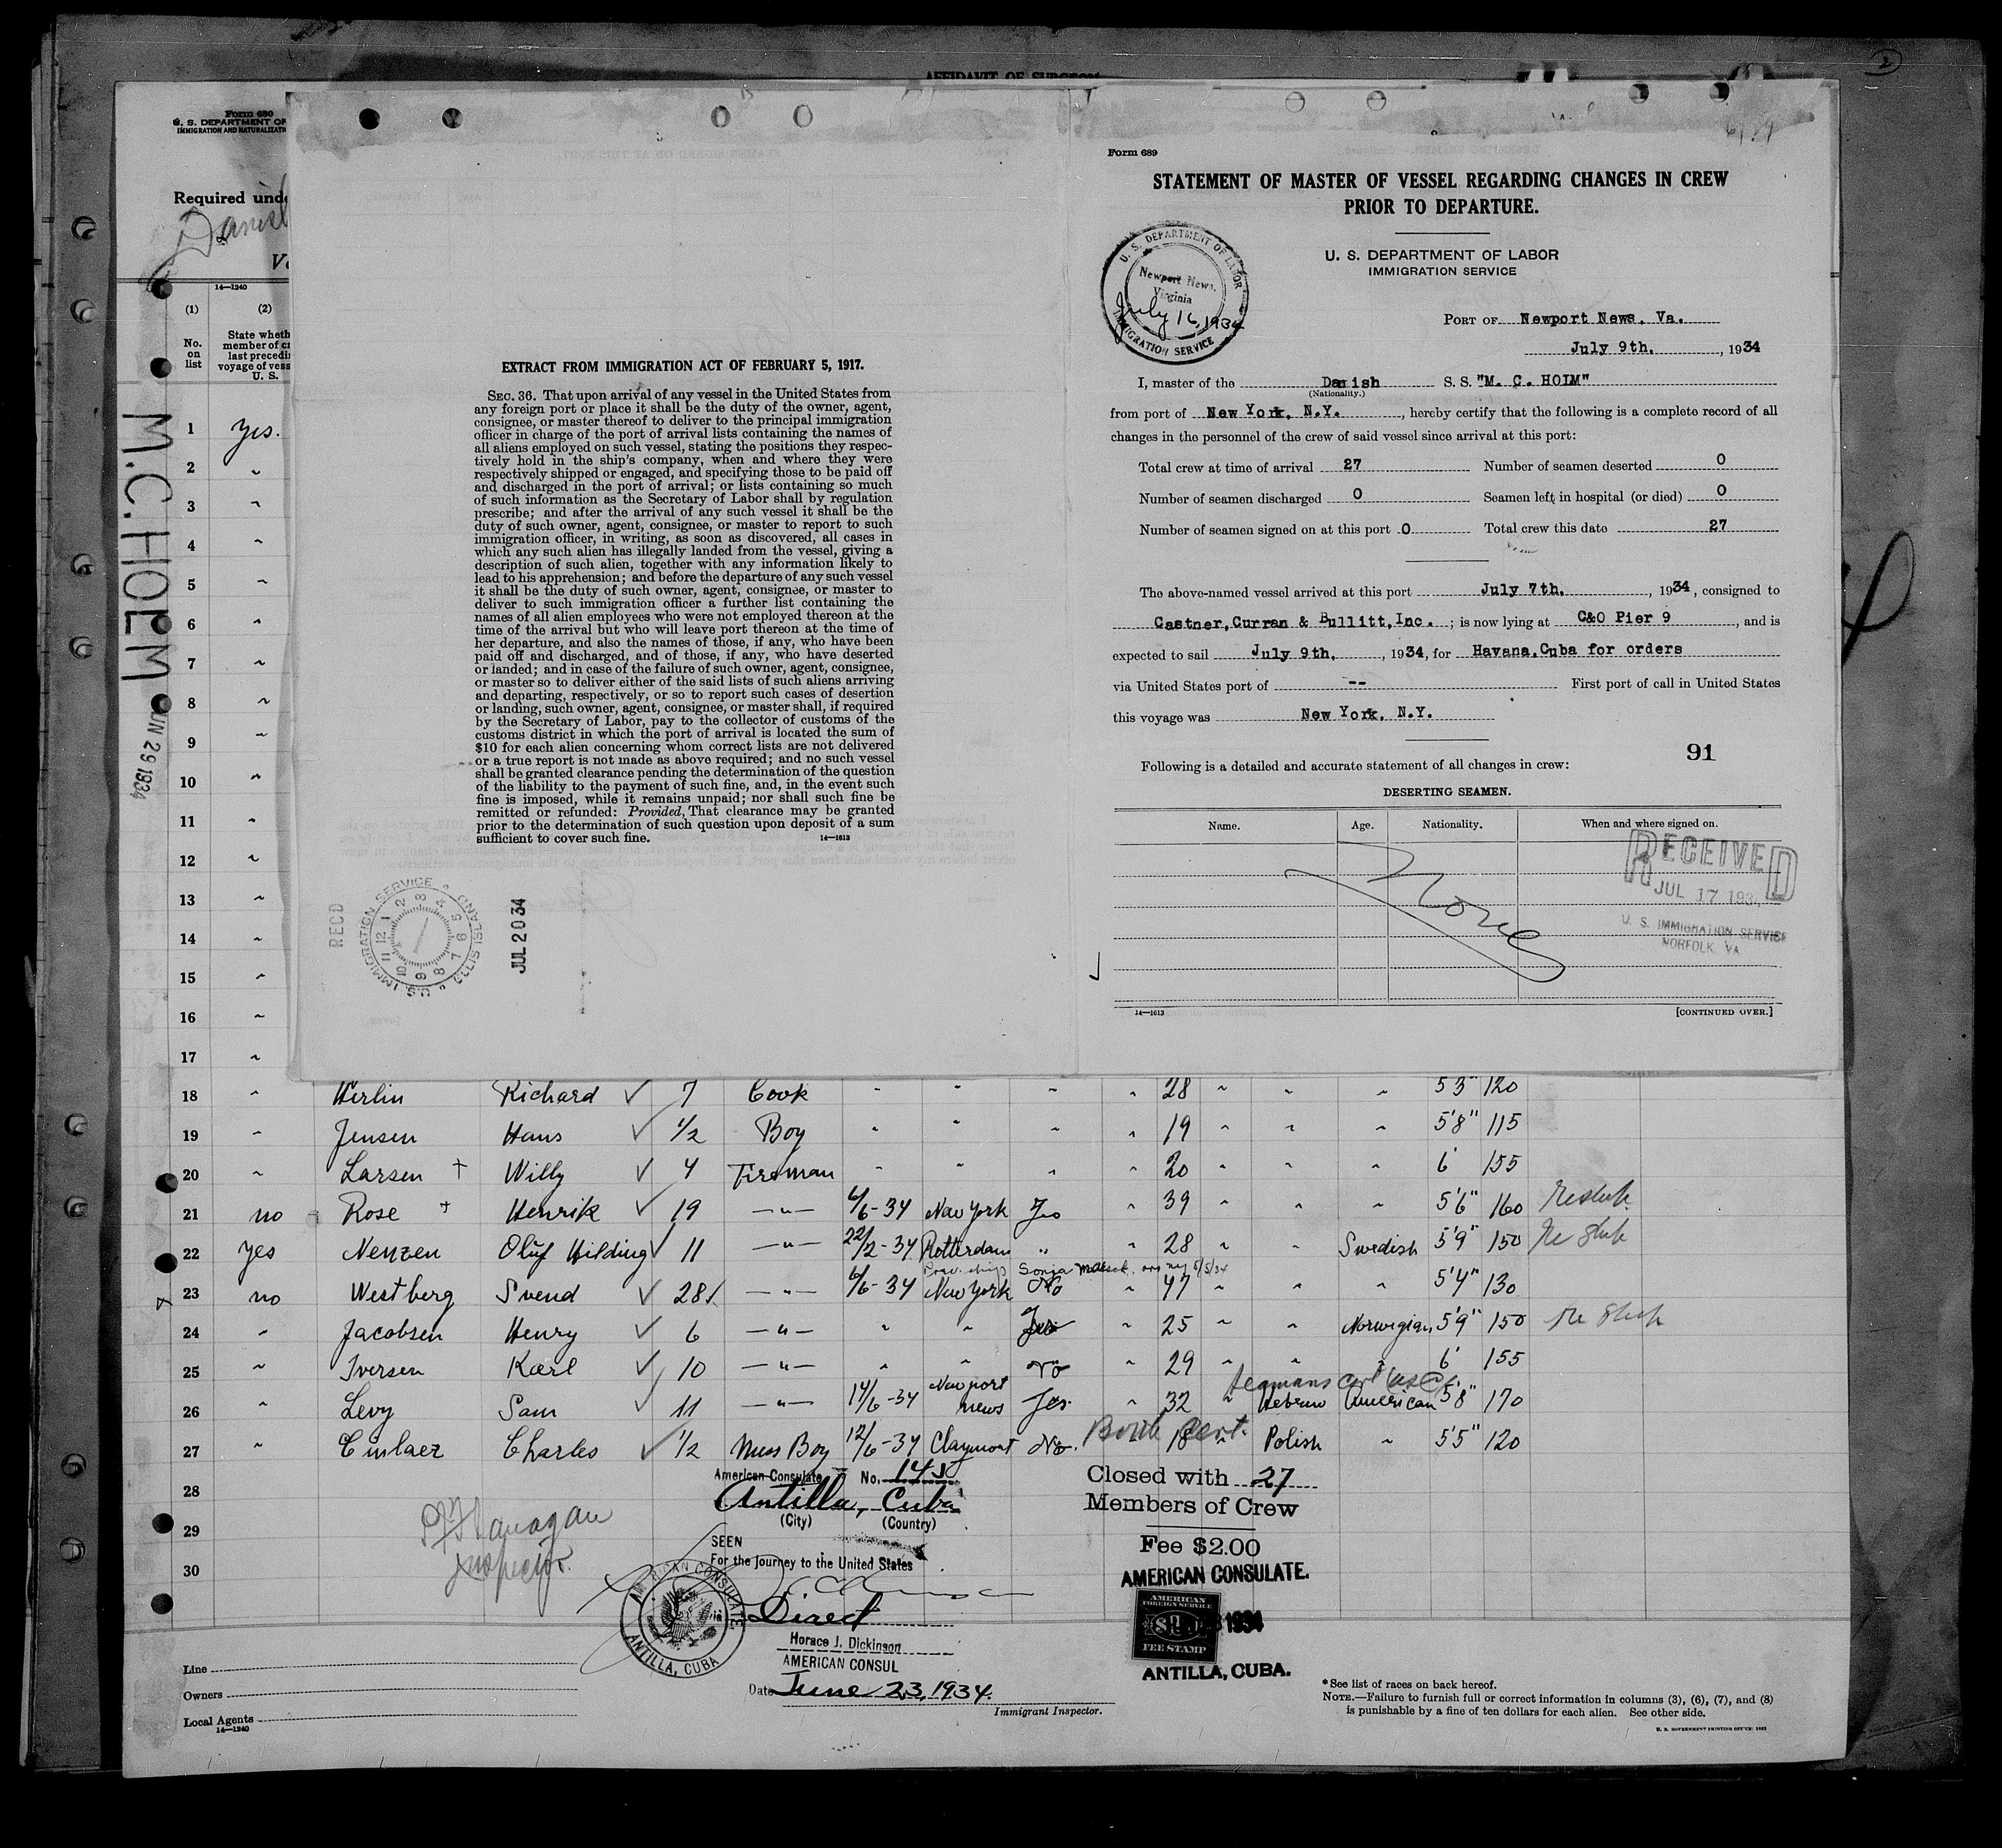 AFFIDAVIT OF SURGEON
2
Form 680
U. S. DEPARTMENT OF
IMMIGRATION AND NATURALIZATI
Required unde
Danish
14—1240
(1)
(2)
No.
on
list
State wheth
member of cr
last precedi
voyage of vess
U. S.
M.C. HOLM
JUN 29 1934
1 Yes.
2 "
3 "
4 "
5 "
6 "
7 "
8 "
9 "
10 "
11 "
12 "
13 "
14 "
15 "
16 "
17 "
EXTRACT FROM IMMIGRATION ACT OF FEBRUARY 5, 1917.
SEC. 36. That upon arrival of any vessel in the United States from
any foreign port or place it shall be the duty of the owner, agent,
consignee, or master thereof to deliver to the principal immigration
officer in charge of the port of arrival lists containing the names of
all aliens employed on such vessel, stating the positions they respec-
tively hold in the ship's company, when and where they were
respectively shipped or engaged, and specifying those to be paid off
and discharged in the port of arrival; or lists containing so much
of such information as the Secretary of Labor shall by regulation
prescribe; and after the arrival of any such vessel it shall be the
duty of such owner, agent, consignee, or master to report to such
immigration officer, in writing, as soon as discovered, all cases in
which any such alien has illegally landed from the vessel, giving a
description of such alien, together with any information likely to
lead to his apprehension; and before the departure of any such vessel
it shall be the duty of such owner, agent, consignee, or master to
deliver to such immigration officer a further list containing the
names of all alien employees who were not employed thereon at the
time of the arrival but who will leave port thereon at the time of
her departure, and also the names of those, if any, who have been
paid off and discharged, and of those, if any, who have deserted
or landed; and in case of the failure of such owner, agent, consignee,
or master so to deliver either of the said lists of such aliens arriving
and departing, respectively, or so to report such cases of desertion
or landing, such owner, agent, consignee, or master shall, if required
by the Secretary of Labor, pay to the collector of customs of the
customs district in which the port of arrival is located the sum of
$10 for each alien concerning whom correct lists are not delivered
or a true report is not made as above required; and no such vessel
shall be granted clearance pending the determination of the question
of the liability to the payment of such fine, and, in the event such
fine is imposed, while it remains unpaid; nor shall such fine be
remitted or refunded: Provided, That clearance may be granted
prior to the determination of such question upon deposit of a sum
sufficient to cover such fine.
14—1613
RECD
U.S. IMMIGRATION SERVICE ELLIS ISLAND
1 2 3 4 5 6 7 8 9 10 11 12
JUL 20 34
Form 689
STATEMENT OF MASTER OF VESSEL REGARDING CHANGES IN CREW
PRIOR TO DEPARTURE.
U. S. DEPARTMENT OF LABOR
IMMIGRATION SERVICE
U. S. DEPARTMENT OF LABOR
Newport News,
Virginia
July 16, 1934
IMMIGRATION SERVICE
PORT OF Newport News, Va.
July 9th, , 1934
I, master of the Danish S. S. "M. C. HOLM"
(Nationality.)
from port of New York, N.Y. , hereby certify that the following is a complete record of all
changes in the personnel of the crew of said vessel since arrival at this port:
Total crew at time of arrival 27 Number of seamen deserted 0
Number of seamen discharged 0 Seamen left in hospital (or died) 0
Number of seamen signed on at this port 0 Total crew this date 27
The above-named vessel arrived at this port July 7th, , 1934, consigned to
Castner, Curran & Bullitt, Inc. ; is now lying at C&O Pier 9 , and is
expected to sail July 9th, , 1934, for Havana, Cuba for orders
via United States port of -- First port of call in United States
this voyage was New York, N.Y.
91
Following is a detailed and accurate statement of all changes in crew:
DESERTING SEAMEN.
Name. Age. Nationality. When and where signed on.
None
RECEIVED
JUL 17 193
U. S. IMMIGRATION SERVICE
NORFOLK, VA
14—1613
[CONTINUED OVER.]
18 " Herlin Richard 7 Cook " " " " 28 " " " 5'3" 120
19 " Jensen Hans 1/2 Boy " " " " 19 " " " 5'8" 115
20 " Larsen Willy 4 Fireman " " " " 20 " " " 6' 155
21 no Rose Henrik 19 —"— 6/6-34 New York Yes " 39 " " " 5'6" 160
22 yes Nenzen Oluf Hilding 11 —"— 22/2-34 Rotterdam " " 28 " " Swedish 5'9" 150
Prev. ship Sonja Maersk arr ny 5/5/34
23 no Westberg Svend 28 —"— 6/6-34 New York No " 47 " " " 5'4" 130
24 " Jacobsen Henry 6 —"— " " Yes " 25 " " Norwegian 5'9" 150
25 " Iversen Karl 10 —"— " " No " 29 " " " 6' 155
Seamans cert
26 " Levy Sam 11 —"— 14/6-34 Newport News Yes " 32 " Hebrew American 5'8" 170
Birth Cert.
27 " Charles 1/2 Mess Boy 12/6-34 Claymont No. 18 " Polish " 5'5" 120
28
29
30
Flanagan
Inspector.
American Consulate No. 145
Antilla, Cuba
(City) (Country)
SEEN
For the journey to the United States
via Direct
AMERICAN CONSULATE
ANTILLA, CUBA
Horace J. Dickinson
AMERICAN CONSUL
Date June 23, 1934.
Immigrant Inspector.
Closed with 27
Members of Crew
Fee $2.00
AMERICAN CONSULATE.
AMERICAN
FOREIGN SERVICE
FEE STAMP
1934
ANTILLA, CUBA.
Line
Owners
Local Agents
14—1240
* See list of races on back hereof.
NOTE.—Failure to furnish full or correct information in columns (3), (6), (7), and (8)
is punishable by a fine of ten dollars for each alien. See other side.
U. S. GOVERNMENT PRINTING OFFICE: 1933